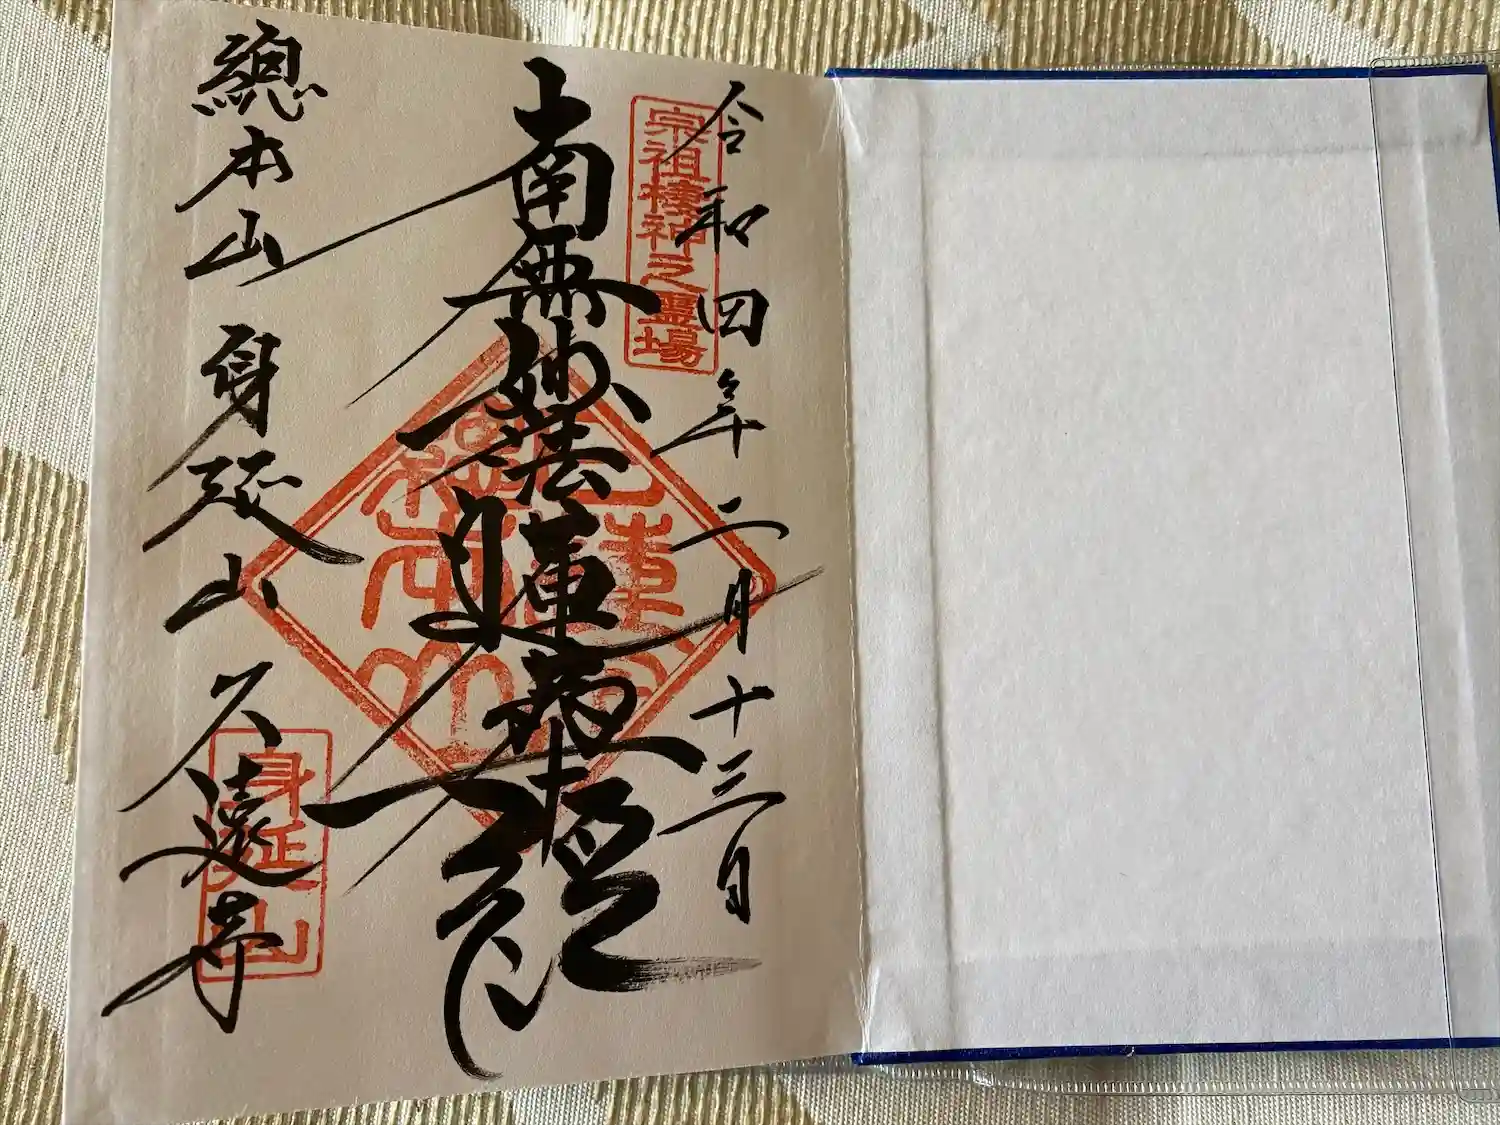 令和四年二月十三日
宗祖棲神之霊場
南無妙法蓮華経
總本山身延山久遠寺
身延山